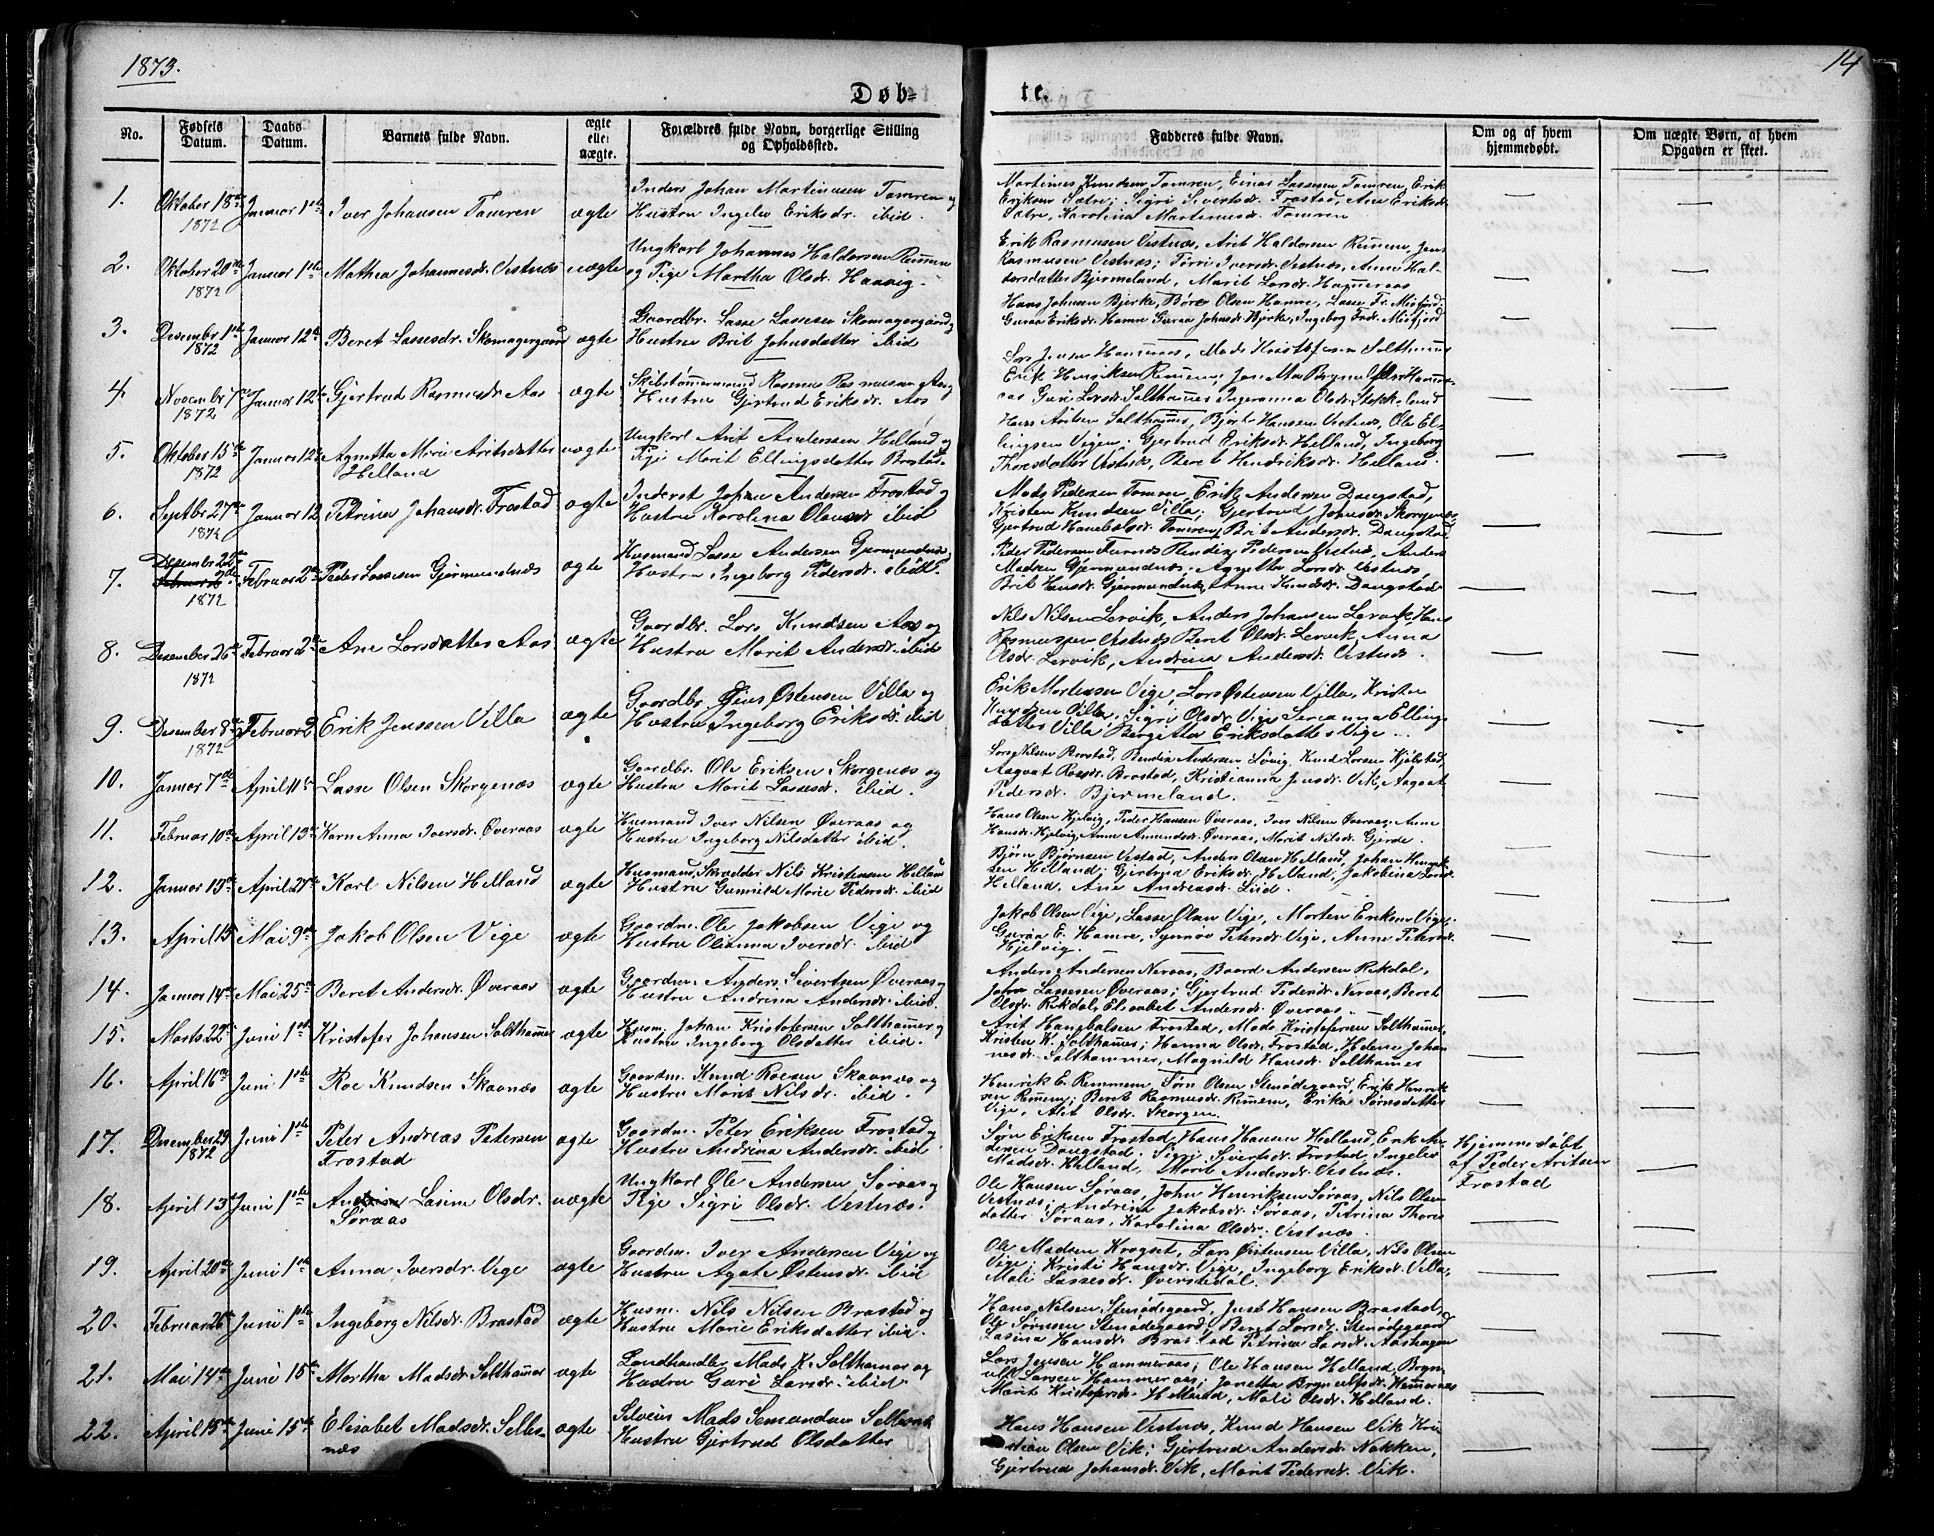 1873.
14
Døb-
te.
No.
Fødsels Datum.
Daabs Datum.
Barnets fulde Navn.
ægte eller uægte.
Forældres fulde Navn, borgerlige Stilling og Opholdssted.
Fadderes fulde Navn.
Om og af hvem hjemmedøbt.
Om uægte Børn, af hvem Opgaven er skeet.
1. Oktober 18de Januar 1ste Iver Johansen Tomren ægte Inders Johan Martinusen Tomren og
1872 Hustru Ingelev Eriksdr. ibid.
Martinus Knudsen Tomren, Einar Lassesen Tomren, Erik
Eriksen Sætre; Sigri Sivertsdr. Frostad, Ane Eriksdr.
Sætre, Karolina Martinusdr. Tomren
2. Oktober 20de Januar 1ste Mathea Johannesdr. Vestnæs uægte Ungkarl Johannes Haldorsen Remmen
1872 og Pige Martha Olsdr. Haavig.
Erik Rasmusen Vestnæs, Arit Haldorsen Remem, Jens
Rasmusen Vestnæs; Iversdr. Vestnæs, Anne Hal-
dorsdatter Bjermeland, Marit Larsdr. Hammeraas
3. Desember 1ste Januar 12te Beret Lassesdr. Skomagergaard ægte Gaardbr. Lasse Lassesen Skomagergaard og
1872 Hustru Brit Johnsdatter ibid
Hans Johnsen Bjerke, Børe Olsen Hamre, Lasse Fr. Misfjord
Guraa Eriksdr. Hamre Guraa Johnsdr. Bjerke, Ingeborg Misfjord
4. November 7de Januar 12te Gjertrud Rasmusdr. Aas ægte Skibstømmermand Rasmus Rasmusen Aas og
1872 Hustru Gjertrud Eriksdr. Aas
Lars Jensen Hammeraas, Mads Kristofersen Salthammer
Erik Henriksen Remem; Hamme-
raas Guri Larsdr. Salthammer Ingeranna Olsdr. Stokkeland
5. Oktober 15de Januar 12te Agnetta Marie Aritsdatter uægte Ungkarl Arit Andersen Helland og
1872 Helland Pige Marit Ellingsdatter Brastad.
Hans Salthammer, Bjørn Hansen Vestnæs, Ole El-
lingsen Vigen; Gjertrud Eriksdr. Helland, Ingeborg
Thoresdatter Vestnæs, Beret Hendriksdr. Helland.
6. Septbr 27de Januar 12 Petrina Johansdr. Frostad ægte Inderst Johan Andersen Frostad og
1872 Hustru Karolina Olausdr. ibid
Mads Pedersen Tomren, Erik Andersen Daugstad,
Kristen Knudsen Villa; Gjertrud Johnsdr. Skorgenæs,
Gjertrud Hanebalsdr. Tomren, Brit Andersdr. Daugstad
7. Desember 22de Februar 2den Peder Lassesen Gjermundnæs ægte Husmand Lasse Andersen Gjermundnæs
1872 Hustru Ingeborg Pedersdr. ibid.
Peder Pedersen Furnæs Pedersen Vestnæs, Anders
Madsen Gjermundnæs; Agnetta Larsdr. Vestnæs,
Brit Hansdr. Gjermundnæs, Anne Knudsdr. Daugstad
8. Desember 26de Februar 2den Ane Larsdatter Aas ægte Gaardbr. Lars Knudsen Aas og
1872 Hustru Marit Andersdr. ibid
Nils Nilsen Lervik, Anders Johansen Lervik, Hans
Rasmussen Vestnæs Beret Olsdr. Lervik, Anna
Olsdr. Lervik, Andrina Andersdr. Vestnæs.
9. Desember 8de Februar 2 Erik Jenssen Villa ægte Gaardbr. Jens Østensen Villa og
1872 Hustru Ingeborg Eriksdr. ibid
Erik Mortensen Vige, Lars Østensen Villa, Kristen
Knudsen Villa; Sigri Olsdr. Vige Seranna Ellings-
datter Villa Bergitta Eriksdatter Vige.
10. Januar 7de April 11te Lasse Olsen Skorgenæs ægte Gaardbr. Ole Eriksen Skorgenæs og
Hustru Marit Lassesdr. ibid.
Lars Nilsen Brastad, Bendix Andersen Knud Larsen Kjelstad,
Aagaat Brastad, Kristianna Jensdr. Vik, Aagaat
Pedersdr. Bjermeland.
11. Februar 10de April 13de Karn Anna Iversdr. Øveraas ægte Husmand Iver Nilsen Øveraas og
Hustru Ingeborg Nilsdatter ibid.
Hans Olsen Hjelvig, Peder Hansen Øveraas, Iver Nilsen Øveraas, Anne
Hansdr. Hjelvig, Anne Amundsdr. Øveraas, Marit Nilsdr. Gjerde.
12. Januar 13de April 27de Karl Nilsen Helland ægte Husmand, Skrædder Nils Kristensen Helland
Hustru Gunnild Marie Pedersdr. ibid
Bjørn Bjørnsen Vestad, Anders Olsen Helland, Johan
sen Helland; Gjertrud Eriksdr. Helland, Jakobina Larsdr.
Helland, Ane Andreasdr. ibid.
13. April 13 Mai 9de Jakob Olsen Vige ægte Gaardm. Ole Jakobsen Vige og
Hustru Olianna Iversdr. ibid
Jakob Olsen Vige, Lasse Olsen Vige, Morten Eriksen Vige;
Guraa E. Hamre, Synnøv Petersdr. Vige, Anne Petersdr.
Hjelvig.
14. Januar 14de Mai 25de Beret Andersdr. Øveraas ægte Gaardm. Anders Sivertsen Øveraas og
Hustru Andrina Andersdr. ibid.
Anders Andersen Neraas, Baard Andersen Rekdal,
John Lassesen Øveraas; Gjertrud Pedersdr. Neraas, Beret
Olsdr. Rekdal, Elisabet Andersdr. Øveraas.
15. Marts 22de Juni 1ste Kristofer Johansen Salthammer ægte Husm. Johan Kristofersen Salthammer og
Hustru Ingeborg Olsdatter ibid.
Arit Hanebalsen Frostad, Mads Kristofersen Salthammer,
Kristen K. Salthammer; Hanna Olsdr. Frostad, Helene Johan
nesdr. Salthammer, Magnild Hansdr. Salthammer
16. April 16de Juni 1ste Roe Knudsen Skaanæs ægte Gaardm. Knud Roesen Skaanæs og
Hustru Marit Nilsdr. ibid.
Henrik E. Remmem, Sørn Olsen Stenødegaard, Erik Henrik-
sen Remem; Beret Rasmusdr. Remem, Erika Sørnsdatter
Vige, Alet Olsdr. Skorgen.
17. Desember 29 Juni 1ste Peter Andreas Petersen ægte Gaardm. Peter Eriksen Frostad og
1872 Frostad Hustru Andrina Andersdr. ibid
Sørn Eriksen Frostad, Hans Hansen Helland, Erik An-
dersen Daugstad; Sigri Sivertsdr. Frostad, Ingelev
Madsdr. Helland, Marit Andersdr. Vestnæs.
Hjemmedøbt
af Peder Aritsen
Frostad
18. April 13de Juni 1ste Lasine Olsdr. uægte Ungkarl Ole Andersen Søraas og
Søraas Pige Sigri Olsdr. Vestnæs.
Ole Hansen Søraas, John Henriksen Søraas, Nils Olsen
Vestnæs; Andrina Jakobsdr. Søraas, Petrina Thores
datter Søraas, Karolina Olsdr. Vestnæs
19. April 20de Juni 1ste Anna Iversdr. Vige ægte Gaardm. Iver Andersen Vige og
Hustru Agate Østensdr. ibid
Ole Madsen Krogset, Lars Østensen Villa, Nils Olsen
Vige; Kristi Hansdr. Vige, Ingeborg Eriksdr. Villa,
Mali Lassesdr. Øverstedal.
20. Februar 26de Juni 1ste Ingeborg Nilsdr. Brastad ægte Husm. Nils Nilsen Brastad og
Hustru Marie Eriksdatter ibid.
Hans Nilsen Stenødegaard, Just Hansen Brastad,
Ole Sørnsen Stenødegaard, Beret Larsdr. Stenødegaard
Lasina Hansdr. Brastad Petrina Larsdr. Aashagen
21. Mai 14de Juni 15de Martha Madsdr. Salthammer ægte Landhandler Mads K. Salthamer og
Hustru Guri Larsdr. ibid.
Lars Jensen Hammeraas; Ole Hansen Helland, Bryn-
ulf Larsen Hammeraas; Janetta Brynulfsdr. Hammeraas
Marit Kristofersdr. Helland, Mali Olsdr. Helland.
22. April 15de Juni 15de Elisabet Madsdr. Selles- ægte Mads Semundsen Sellesnæs
næs Hustru Gjertrud Olsdatter
Hans Hansen Vestnæs, Knud Hansen Vik Kri-
stian Olsen Vik; Gjertrud Andersdr. Nakken,
Gjertrud Johansdr. Vik, Marit Pedersdr. Vik.